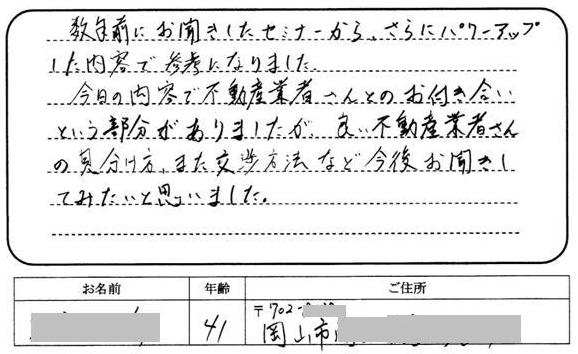 数年前にお聞きしたセミナーから、さらにパワーアップ
した内容で参考になりました。
今日の内容で不動産業者さんとのお付き合い
という部分がありましたが、良い不動産業者さん
の見分け方、また交渉方法など今後お聞きし
てみたいと思いました。
お名前 年齢 ご住所
41 〒702-
岡山市